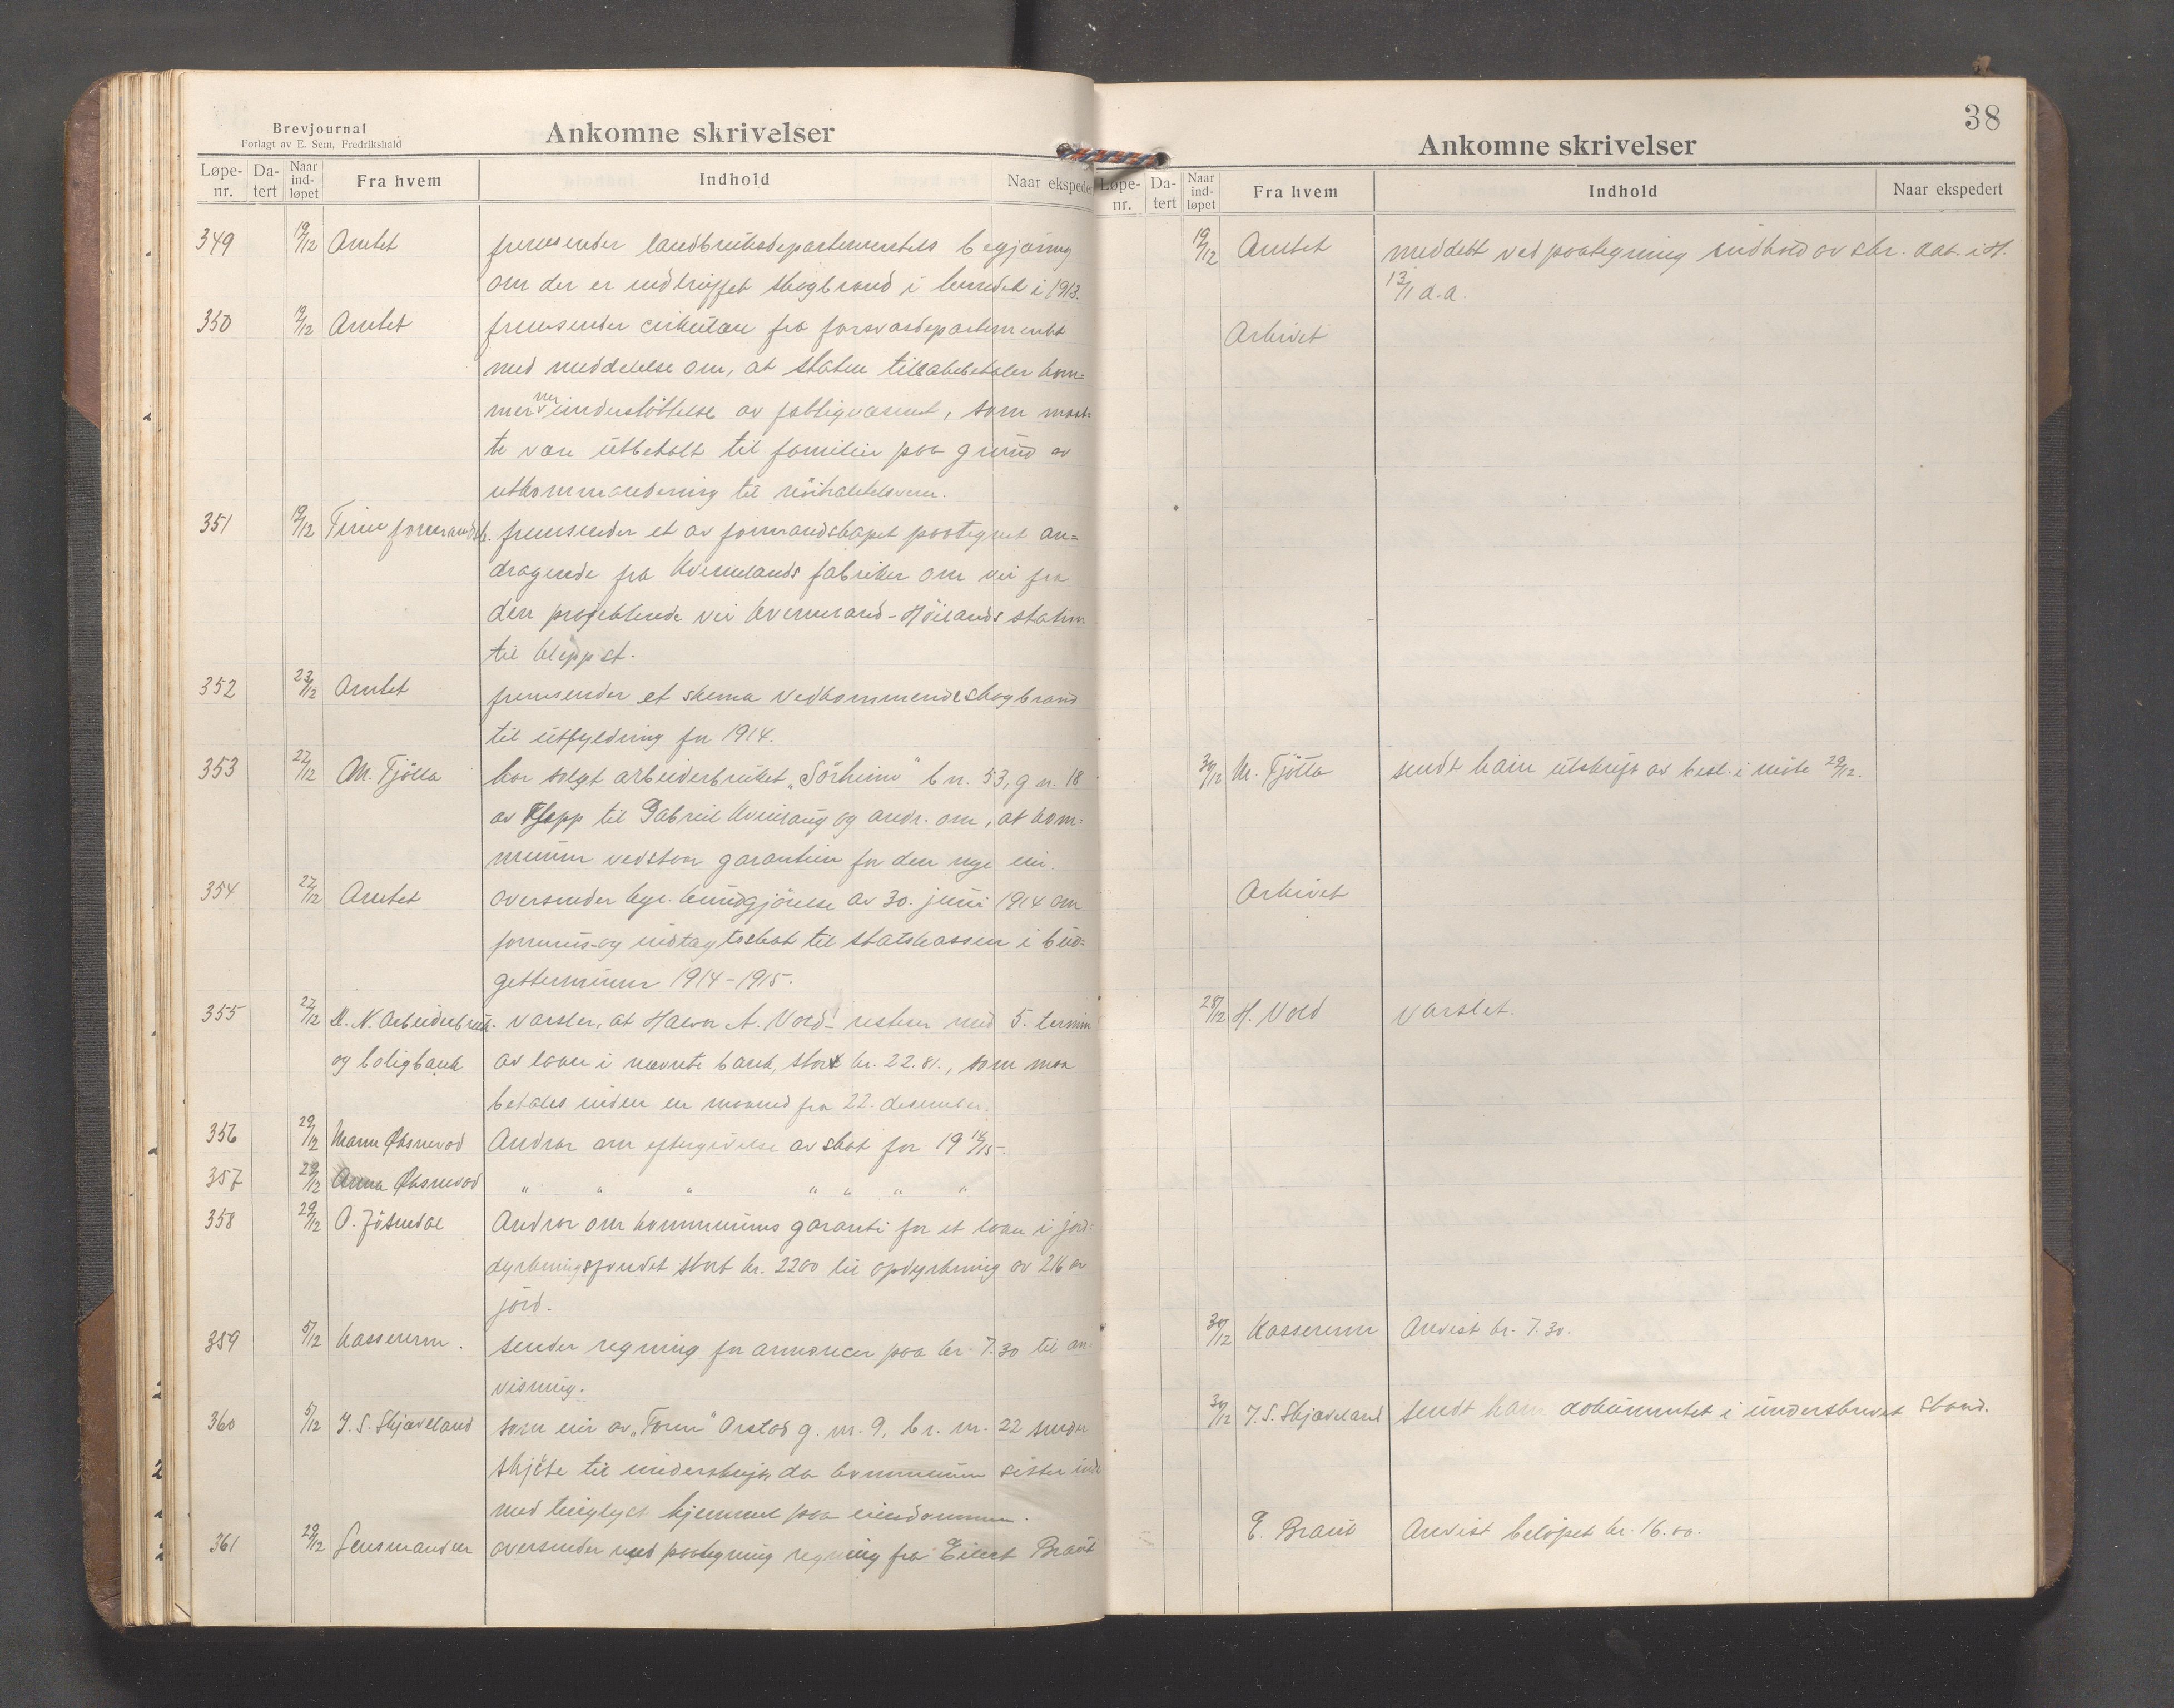 Brevjournal
Forlagt av E. Sem, Fredrikshald
Ankomne skrivelser
Løpe-nr. Da-tert Naar ind-løpet Fra hvem Indhold Naar ekspedert
349 19/12 Amtet fremsender landbruksdepartementets begjæring
om der er indtruffet skogbrand i herredet i 1913.
350 19/12 Amtet fremsender cirkulære fra forsvarsdepartementet
med meddelelse om, at staten tilbakebetaler kom-
munen understøttelse av fattigvæsenet, som maat-
te være utbetalt til familier paa grund av
utkommandering til nöitralitetsvern.
351 19/12 Time formandsk. fremsender et av formandskapet paategnet an-
dragende fra Kvernelands fabriker om vei fra
den projekterede vei Kverneland-Höilands station
til Klepp st.
352 23/12 Amtet fremsender et skema vedkommende skogbrand
til utfyldning for 1914.
353 27/12 M. Tjötta har solgt arbeiderbruket "Sörheim" b.n. 53, g.n. 18
av Klepp til Gabriel Kvernaug og andr. om, at kom-
munen vedstaar garantien for den nye eier.
354 27/12 Amtet oversender kgl. kundgjörelse av 30. juni 1914 om
formues- og indtægtsskat til statskassen i bud-
getterminen 1914-1915.
355 27/12 D. N. Arbeiderbruk- varsler, at Haavor A. Vold resterer med 5. termin
og boligbank av laan i nævnte bank, stort kr. 22.81., som maa
betales inden en maaned fra 22. desember.
356 29/12 Maren Øksnevad Andrar om eftergivelse av skat for 1914/15.
357 29/12 Anna Øksnevad " " " " " " "
358 29/12 O. Jösendal Andrar om kommunens garanti for et laan i jord-
dyrkningsfondet stort kr. 2200 til opdyrkning av 216 ar
jord.
359 5/12 Kassereren. sender regning for annoncer paa kr. 7.30 til an-
visning.
360 5/12 J. S. Skjæveland som eier av "Toun" Orstad g. nr. 9, br. nr. 22 sender
skjöte til underskrift, da kommunen sitter inde
med tinglyst hjemmel paa eiendommen.
361 29/12 Lensmanden oversender med paategning regning fra Eilert Braut
38
Ankomne skrivelser
Løpe-nr. Da-tert Naar ind-løpet Fra hvem Indhold Naar ekspedert
19/12 Amtet meddelt ved paategning indhold av skr. dat. i H.
13/11 d.a.
Arkivet
30/12 M. Tjötta sendt ham utskrift av besl. i möte 29/12.
Arkivet
28/12 H. Vold varslet.
30/12 Kassereren Anvist kr. 7.30.
30/12 J. S. Skjæveland sendt ham dokumentet i underskrevet stand.
E. Braut Anvist belöpet kr. 16.00.